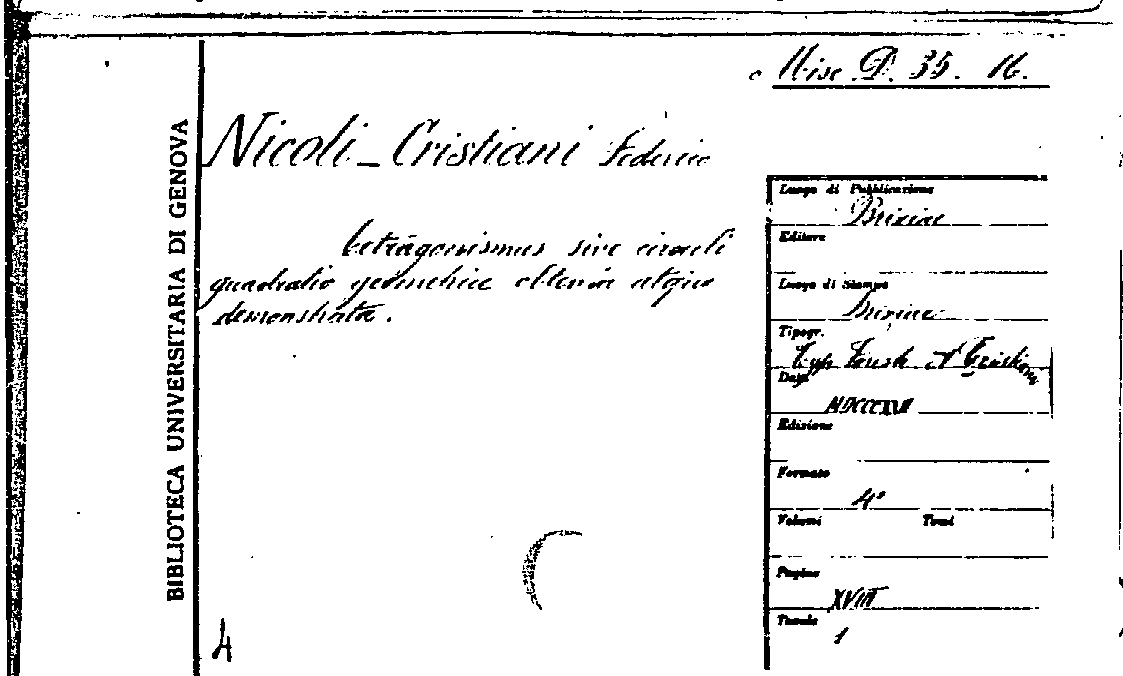 Misc. D. 35. 16.
BIBLIOTECA UNIVERSITARIA DI GENOVA
Nicoli-Cristiani Federico
tetragonismus sive circuli
quadratio geometrice obtenta atque
demonstrata.
Luogo di Pubblicazione
Brixiae
Editore
Luogo di Stampa
Brixiae
Tipogr.
Typ.
Data
Edizione
Formato
4°
Volumi Tomi
Pagine
XVIII
Tavole
1
4